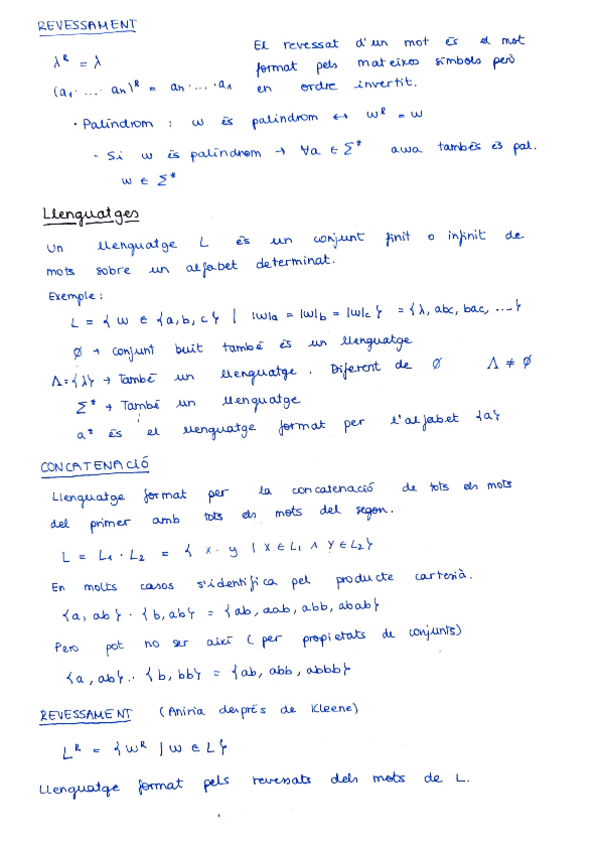 REVESSAMENT
λᴿ = λ
(a₁· ... · an)ᴿ = an · ... · a₁
El revessat d'un mot és el mot
format pels mateixos símbols però
en ordre invertit.
· Palíndrom : w és palíndrom ↔ wᴿ = w
- Si w és palíndrom → ∀a ∈ Σ* awa també és pal.
w ∈ Σ*
Llenguatges
Un llenguatge L és un conjunt finit o infinit de
mots sobre un alfabet determinat.
Exemple:
L = { w ∈ {a, b, c} | |w|a = |w|b = |w|c } = {λ, abc, bac, ...}
∅ → conjunt buit també és un llenguatge
Λ = {λ} → També un llenguatge. Diferent de ∅ Λ ≠ ∅
Σ* → També un llenguatge
a* és el llenguatge format per l'alfabet {a}
CONCATENACIÓ
Llenguatge format per la concatenació de tots els mots
del primer amb tots els mots del segon.
L = L₁ · L₂ = { x · y | x ∈ L₁ ∧ y ∈ L₂}
En molts casos s'identifica pel producte cartesià.
{a, ab} · {b, ab} = {ab, aab, abb, abab}
Pero pot no ser així (per propietats de conjunts)
{a, ab} · {b, bb} = {ab, abb, abbb}
REVESSAMENT (Aniria després de Kleene)
Lᴿ = {wᴿ | w ∈ L}
Llenguatge format pels revessats dels mots de L.